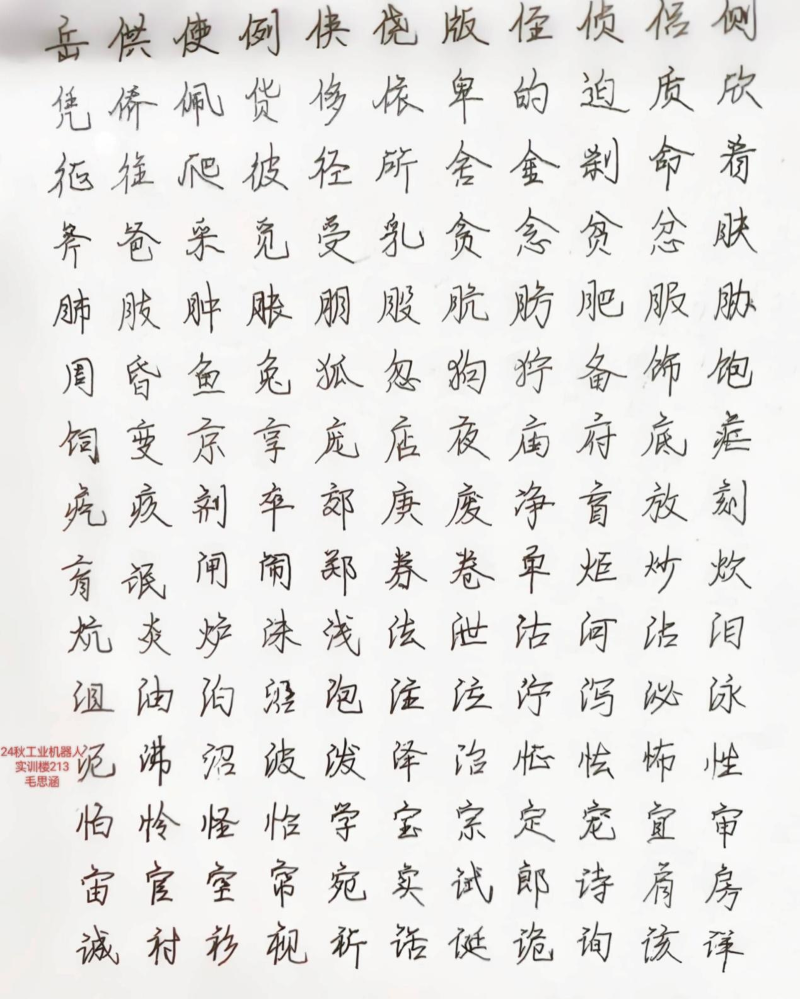 岳供使例侠侥版侄侦侣侧
凭侨佩货侈依卑的迫质欣
征往爬彼径所舍金刹命肴
斧爸采觅受乳贪念贫忿肤
肺肢肿胀朋股肮肪肥服胁
周昏鱼兔狐忽狗狞备饰饱
饲变京享庞店夜庙府底疟
疙疚剂卒郊庚废净盲放刻
育氓闸闹郑券卷单炬炒炊
炕炎炉沫浅法泄沽河沾泪
沮油泊沿泡注泣泞泻泌泳
泥沸沼波泼泽治怔怯怖性
怕怜怪怡学宝宗定宠宜审
宙官空帘宛实试郎诗肩房
诚衬衫视祈话诞诡询该详
24秋工业机器人
实训楼213
毛思涵